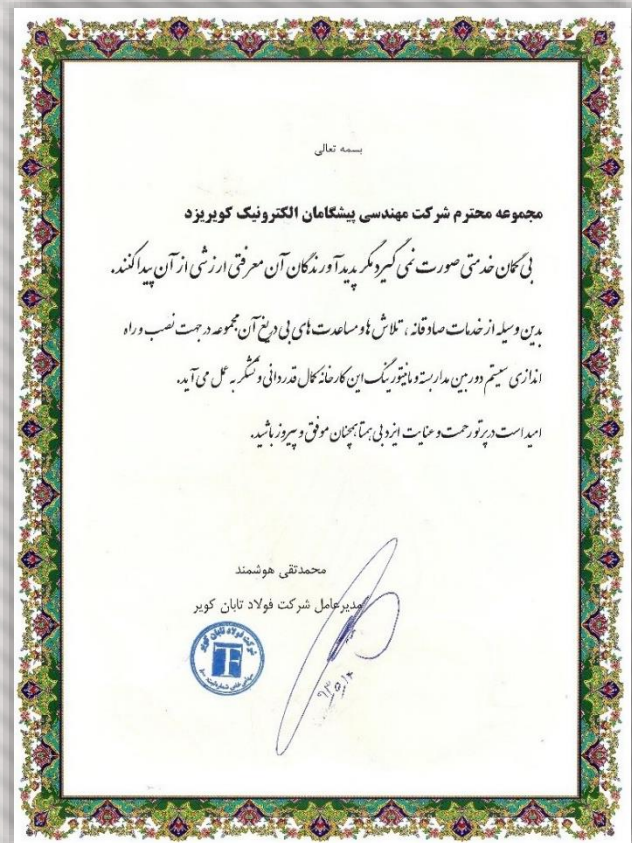 بسمه تعالی
مجموعه محترم شرکت مهندسی پیشگامان الکترونیک کویریزد
بی گمان خدمتی صورت نمی گیرد مگر پدید آورندگان آن معرفتی ارزشی از آن پیدا کنند.
بدین وسیله از خدمات صادقانه، تلاش ها و مساعدت های بی دریغ آن مجموعه در جهت نصب و راه
اندازی سیستم دوربین مدار بسته و مانیتورینگ این کارخانه کمال قدردانی و تشکر به عمل می آید.
امید است در پرتو رحمت و عنایت ایزد بی همتا همچنان موفق و پیروز باشید.
محمدتقی هوشمند
مدیرعامل شرکت فولاد تابان کویر
شرکت فولاد تابان کویر